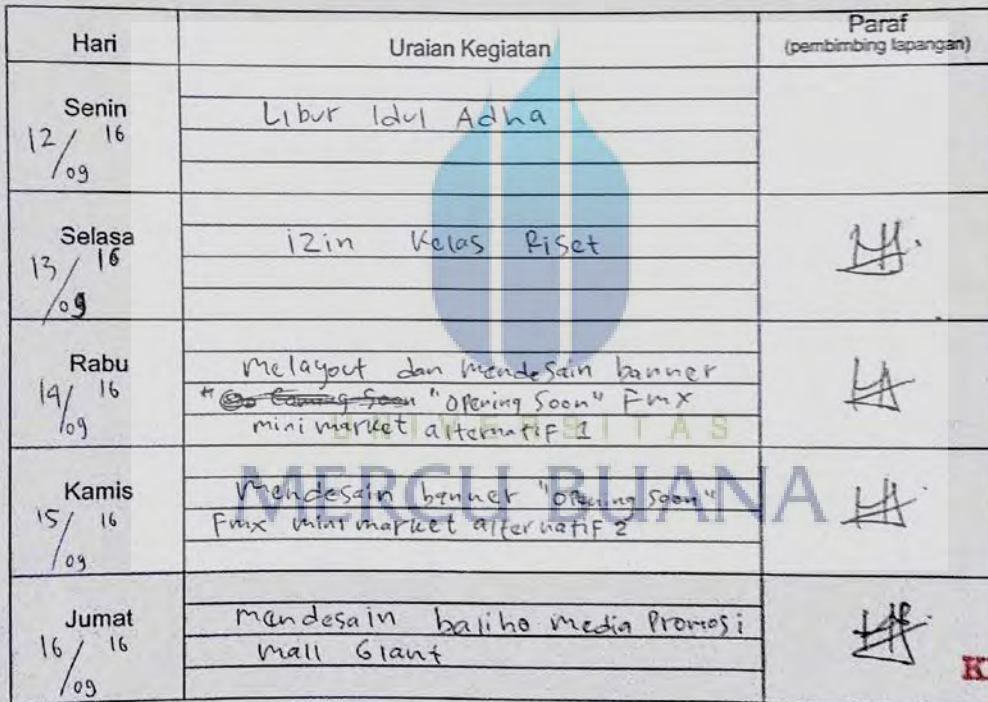 Hari
Uraian Kegiatan
Paraf
(pembimbing lapangan)
Senin
12/09 16
Libur Idul Adha
Selasa
13/09 16
izin Kelas Riset
Rabu
14/09 16
Melayout dan mendesain banner
" Coming Soon "Opening Soon" Fmx
mini market alternatif 1
UNIVERSITAS
MERCU BUANA
Kamis
15/09 16
Mendesain banner "Opening Soon"
Fmx mini market alternatif 2
Jumat
16/09 16
mendesain baliho media Promosi
Mall Giant